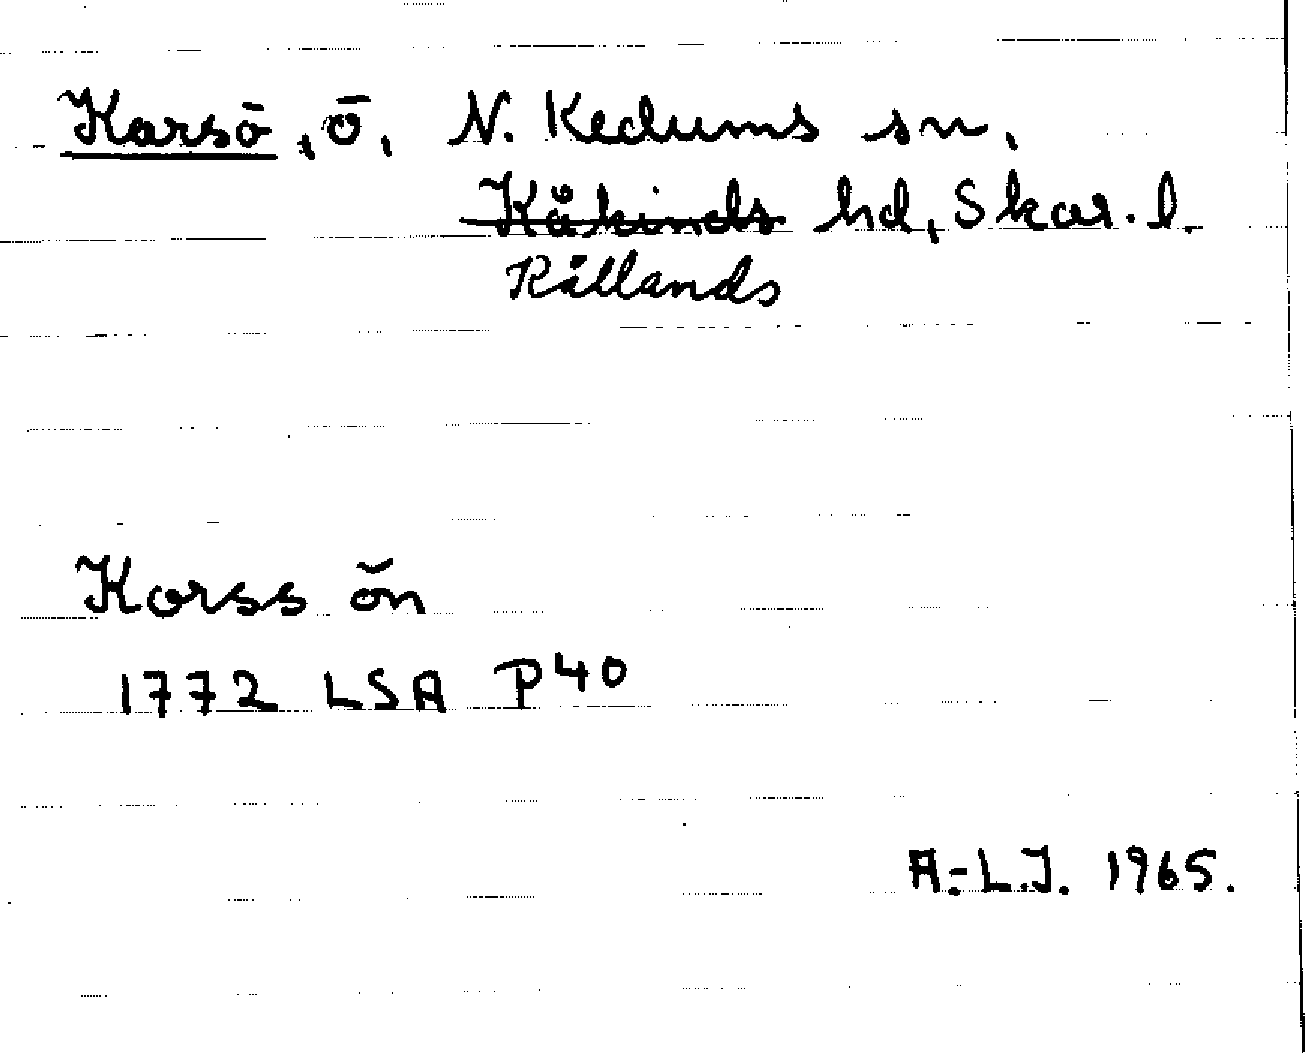 Karsö, ö, N. Kedums sn,
Kåkinds hd, Skar. l.
Kållands
Korss ön
1772 LSA P40
A.-L.J. 1965.